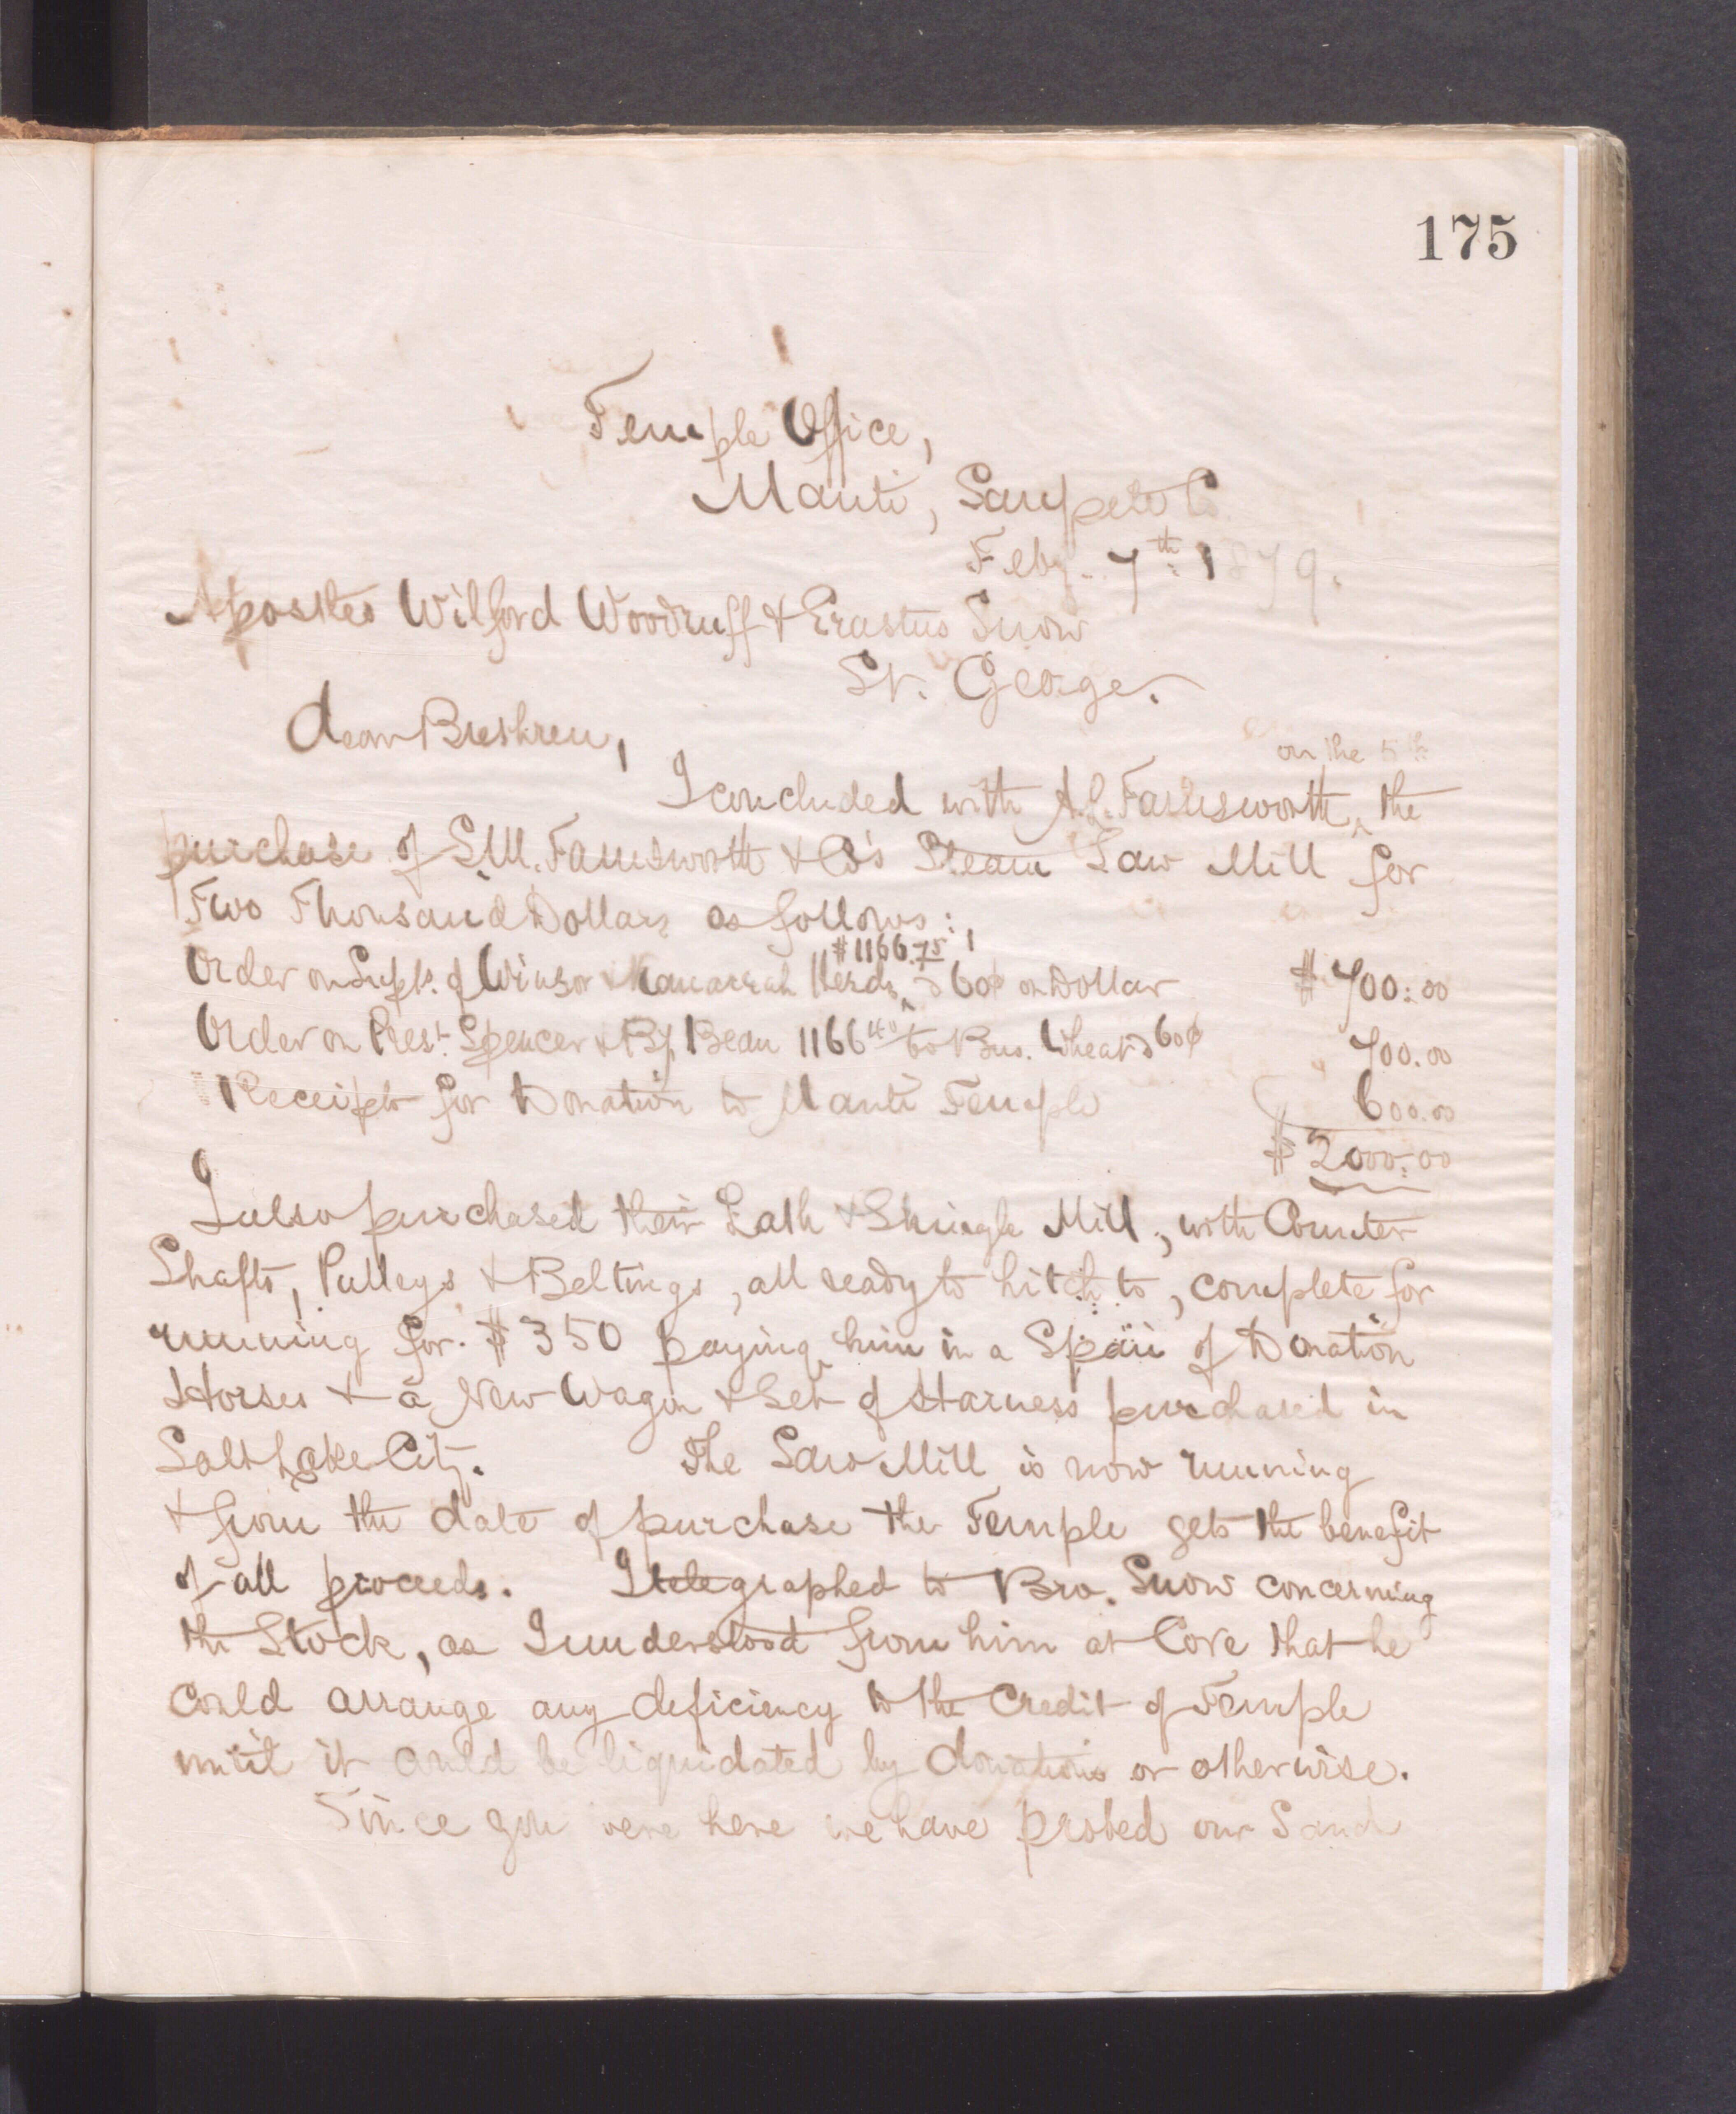 175
Temple Office,
Manti, Sanpete Co
Feby. 7th. 1879.
Apostles Wilford Woodruff & Erastus Snow
St. George.
dear Brethren,
on the 5th
I concluded with A.L. Farnsworth ^ the
purchase of S.W. Farnsworth & Co's Steam Saw Mill for
Two Thousand Dollars as follows:
#1166.75
Order on Supts. of Winsor & Kanarrah Herds ^ @ 60¢ on Dollar $700:00
Order on Prest. Spencer & Bp. Bean 1166 40/60 Bus. Wheat @ 60¢ 700.00
Receipts for Donation to Manti Temple 600.00
$2000.00
I also purchased their Lath & Shingle Mill, with Counter
Shafts, Pulleys & Beltings, all ready to hitch to, complete for
running for $350 paying him in a Span of Donation
Horses & a New Wagon & Set of Harness purchased in
Salt Lake City. The Saw Mill is now running
& from the date of purchase the Temple gets the benefit
of all proceeds. I telegraphed to Bro. Snow concerning
the Stock, as I understood from him at Cove that he
could arrange any deficiency to the Credit of Temple
until it could be liquidated by donations or otherwise.
Since you were here we have probed our Sand